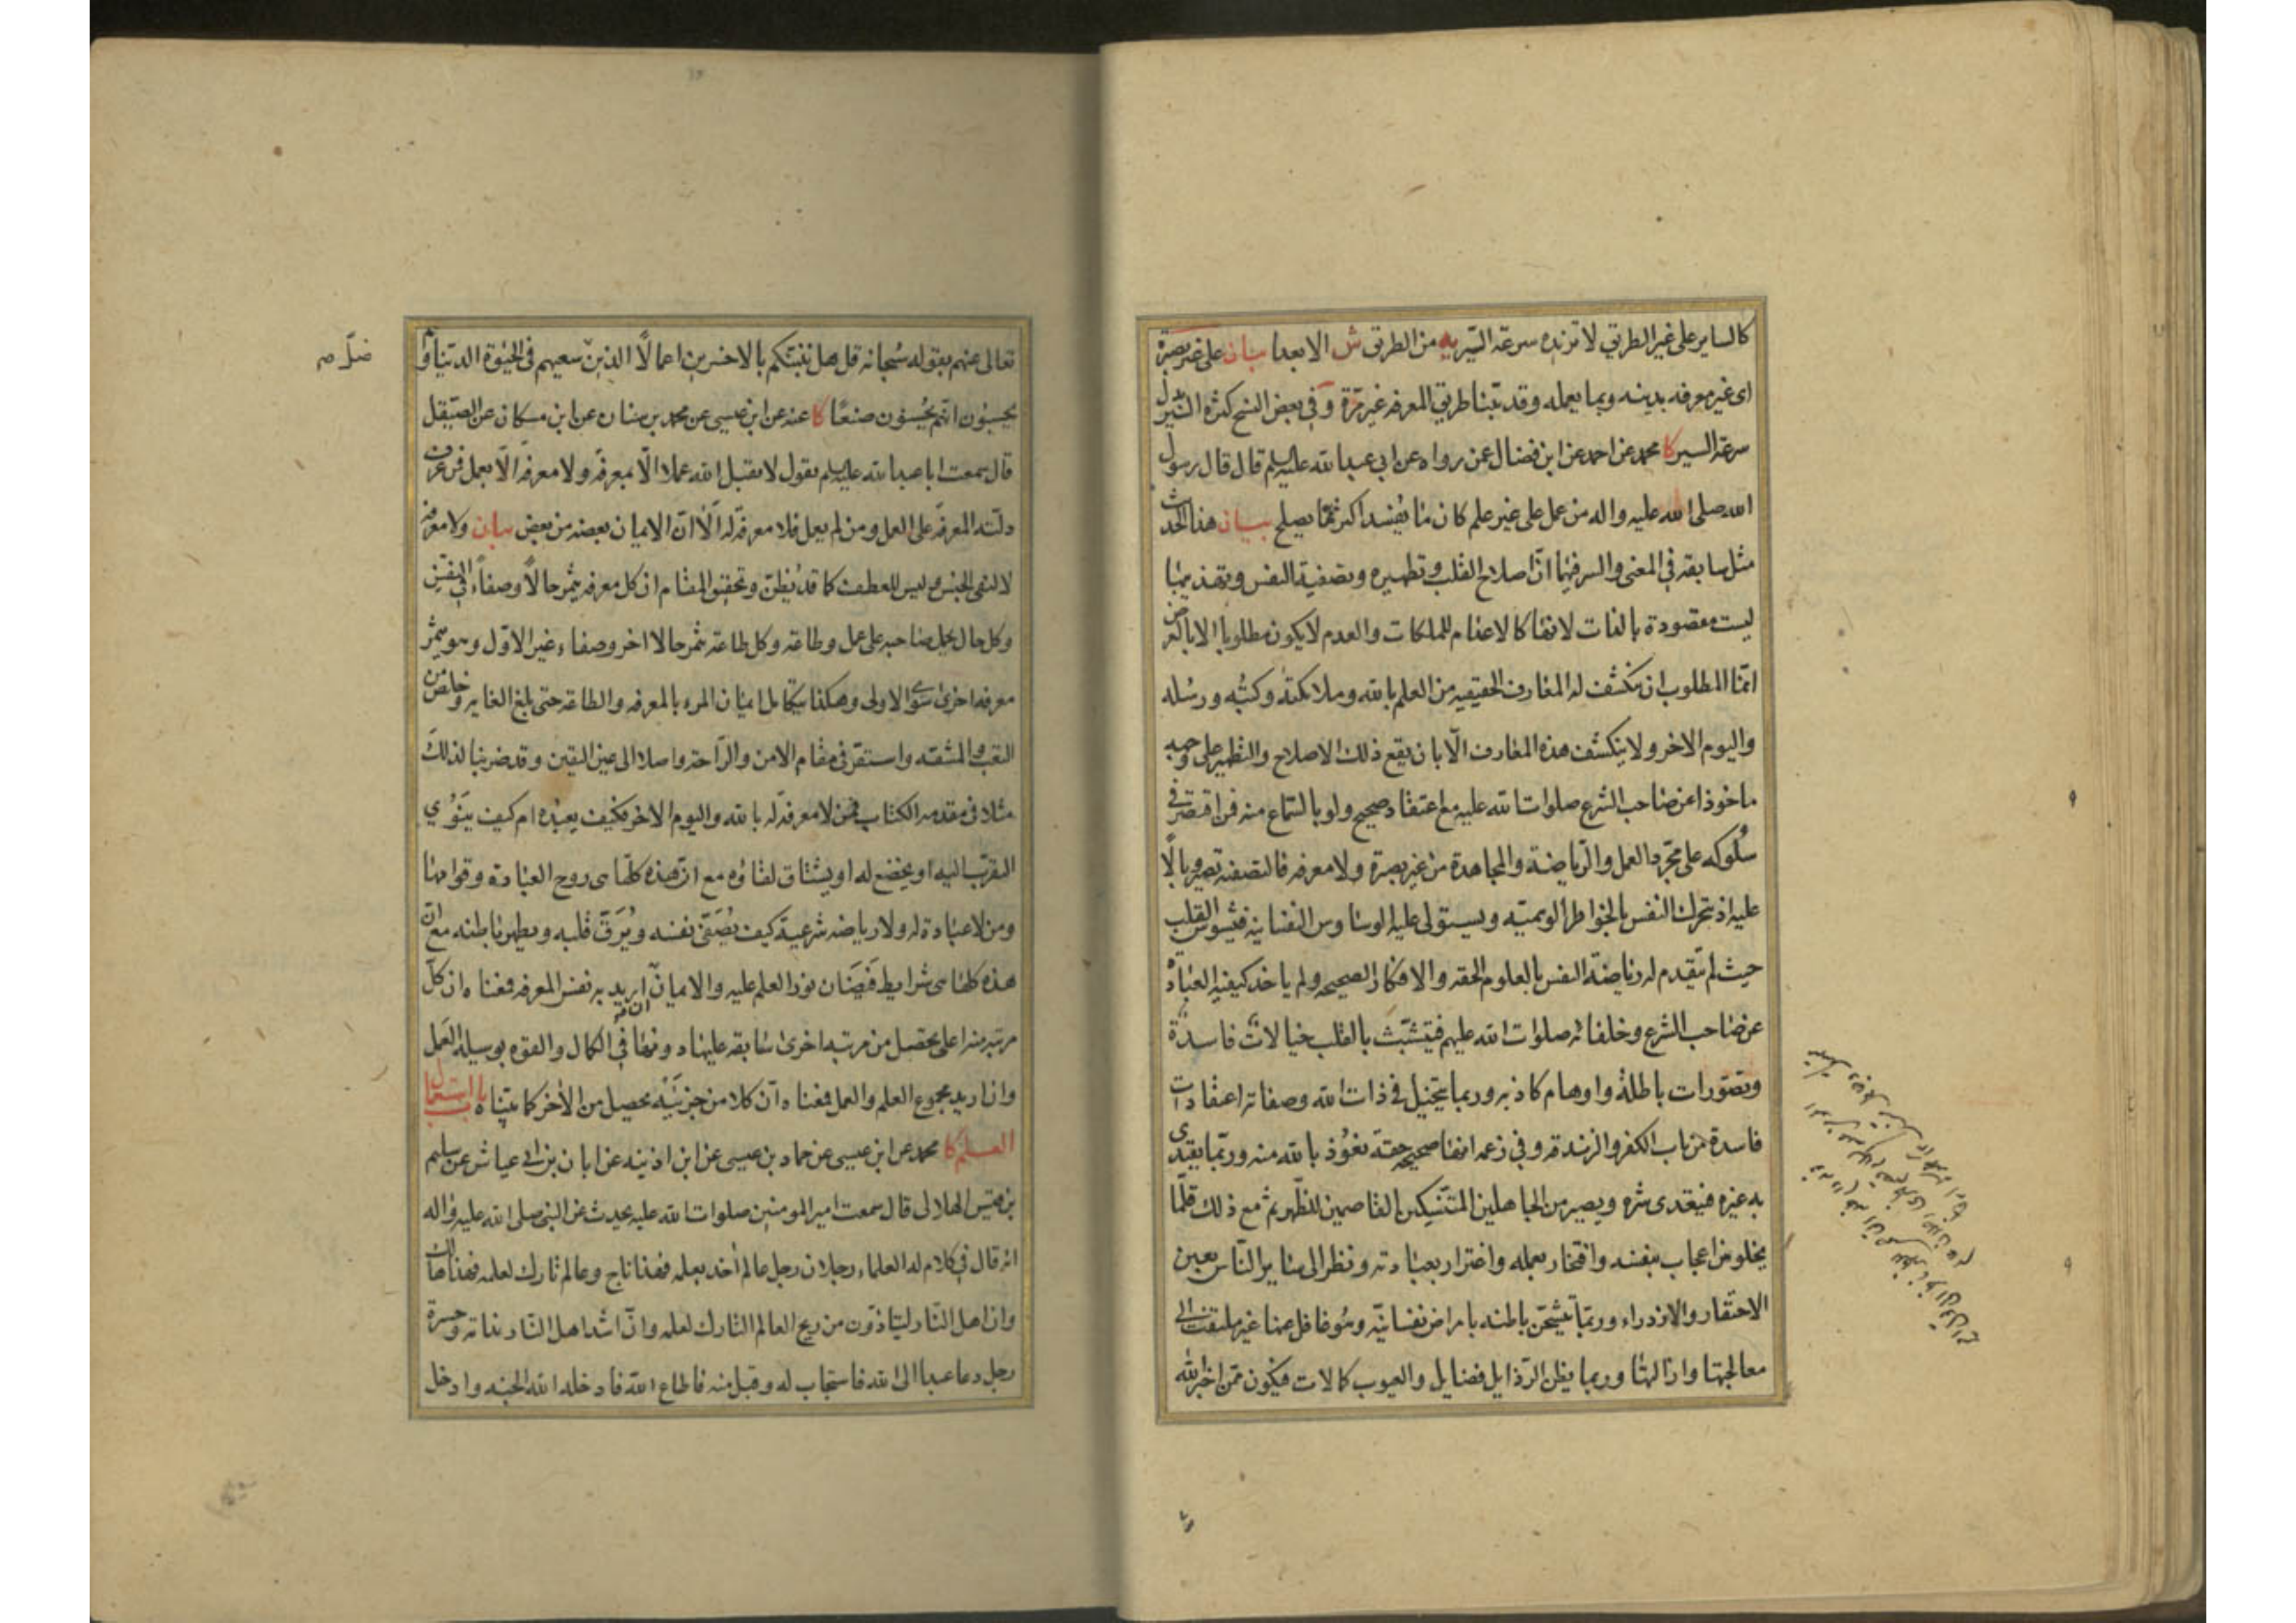 كالساير على غير الطريق لا تزيده سرعة السير به من الطريق ش الا بعدا بيان على غير بصيرة
اى غير معرفه بدينه وبما يعمله وقد بيّنا طريق المعرفه غير مرّة وفي بعض النسخ كثرة السير بدل
سرعة السير كا محمد عن احمد عن ابن فضال عمن رواه عن ابي عبدالله عليه السلم قال قال رسول
الله صلى الله عليه واله من عمل على غير علم كان ما يفسد اكثر مما يصلح بيان هذا الحديث
مثل سابقه في المعنى والسر فيهما انّ اصلاح القلب وتطهيره وتصفية النفس وتهذيبها
ليست مقصودة بالذات لانها كالاعدام للملكات والعدم لا يكون مطلوبا الا بالعرض
انما المطلوب ان ينكشف له المعارف الحقيقيه من العلم بالله وملائكته وكتبه ورسله
واليوم الاخر ولا ينكشف هذه المعارف الّا بان يقع ذلك الاصلاح والتطهير على وجه
ماخوذا عن صاحب الشرع صلوات الله عليه مع اعتقاد صحيح ولو بالسّماع منه فمن اقتصر في
سُلوكه على مجرّد العمل والرّياضة والمجاهدة من غير بصيرة ولا معرفه فالتصفيه تصير وبالًا
عليه اذ يتحرك النفس بالخواطر الوهميّه ويستولى عليه الوساوس النفسانيه فيشوش القلب
حيث لم يتقدم له رياضة النفس بالعلوم الحقه والافكار الصحيحه ولم ياخذ كيفيه العبادة
عن صاحب الشرع وخلفائه صلوات الله عليهم فيتشبّث بالقلب خيالات فاسدة
وتصوّرات باطلة واوهام كاذبه وربما يتخيل في ذات الله وصفاته اعتقادات
فاسدة من باب الكفر والزندقه وفي زعمه انها صحيحه حقة نعوُذ بالله منه وربّما يقتدى
به غيره فيتعدى شره ويصير من الجاهلين المتنسّكين القاصمين للظّهر ثم مع ذلك قلّما
يخلو من اعجاب بنفسه وافتخار بعمله واغترار بعبادته ونظر الى ساير النّاس بعين
الاحتقار والازدراء وربّما يتشحّن باطنه بامراض نفسانيّه وهُو غافل عنها غير ملتفت الى
معالجتها وازالتها وربما يظن الرّذايل فضايل والعيوب كمالات فيكون ممّن اخبر الله
ضلّ م
تعالى عنهم بقوله سُبحانه قل هل ننبئكم بالاخسرين اعمالًا الذين سعيهم في الحيوة الدنيا وهم
يحسبُون انّهم يُحسنُون صنعًا كا عنه عن ابن عيسى عن محمد بن سنان عن ابن مسكان عن الصيقل
قال سمعت ابا عبد الله عليه السلم يقول لا يقبل الله عملا الّا بمعرفه ولا معرفه الّا بعمل فمن عرف
دلّته المعرفة على العمل ومن لم يعمل فلا معرفة له الا انّ الايمان بعضه من بعض بيان ولا معرفه
لا لنفى الجنس وليس للعطف كما قد يُظنّ وتحقيق المقام ان كل معرفه يثمر حالًا وصفاءً في النفس
وكل حال يحمل صاحبه على عمل وطاعه وكل طاعه يثمر حالا اخر وصفاء غير الاوّل وهو يثمر
معرفه اخرى سوى الاولى وهكذا يتكامل ايمان المرء بالمعرفه والطاعه حتى بلغ الغايه وخلص من
التعب والمشقه واستقرّ في مقام الامن والرّاحة واصلا الى عين اليقين وقد ضربنا لذلك
مثلا في مقدمه الكتاب فمن لا معرفة له بالله واليوم الاخر فكيف يعبُده ام كيف ينوُي
التقرّب اليه او يخضع له او يشتاق لقاؤه مع انّ هذه كلّها هى روح العبادة وقوامها
ومن لا عبادة له ولا رياضه شرعية كيف يُصَفّى نفسه ويُرَقّ قلبه ويطهر باطنه مع انّ
هذه كلها هى شرايط فَيَضان نور العلم عليه والايمان ان اريد به نفس المعرفه فمعناه ان كلّ
مرتبه منه اعلى يحصل من مرتبه اخرى سابقه عليها دونها في الكمال والقوه بوسيلة العمل
وان اريد مجموع العلم والعمل فمعناه انّ كلا من جزئيه يحصل من الاخر كما بيّناه باب استعمال
العلم كا محمد عن ابن عيسى عن حماد بن عيسى عن ابن اذينه عن ابان بن ابي عياش عن سليم
بن قيس الهلالى قال سمعت امير المومنين صلوات الله عليه يحدث عن النبي صلى الله عليه واله
انه قال في كلام له العلماء رجلان رجل عالم أخذ بعلمه فهذا ناج وعالم تارك لعلمه فهذا هالك
وان اهل النّار ليتاذّون من ريح العالم التارك لعلمه وانّ اشد اهل النّار ندامة وحسرة
رجل دعا عبدا الى الله فاستجاب له وقبل منه فاطاع الله فادخله الله الجنه وادخل